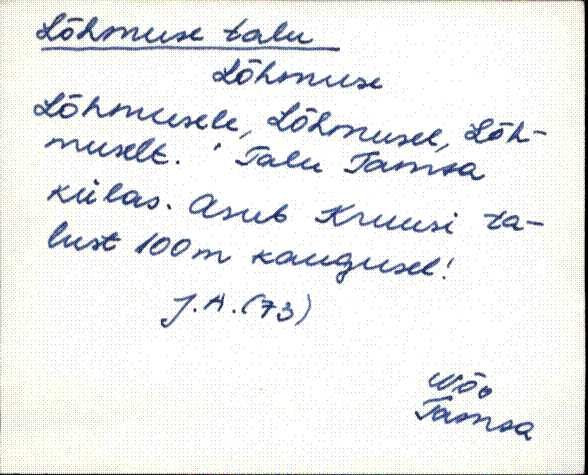 Lõhmuse talu
Lõhmuse
Lõhmusele, Lõhmusel, Lõh-
muselt. ' Talu Tamsa
külas. Asub Kruusi ta-
lust 100m kaugusel!
J.A.(73)
Nõo
Tamsa